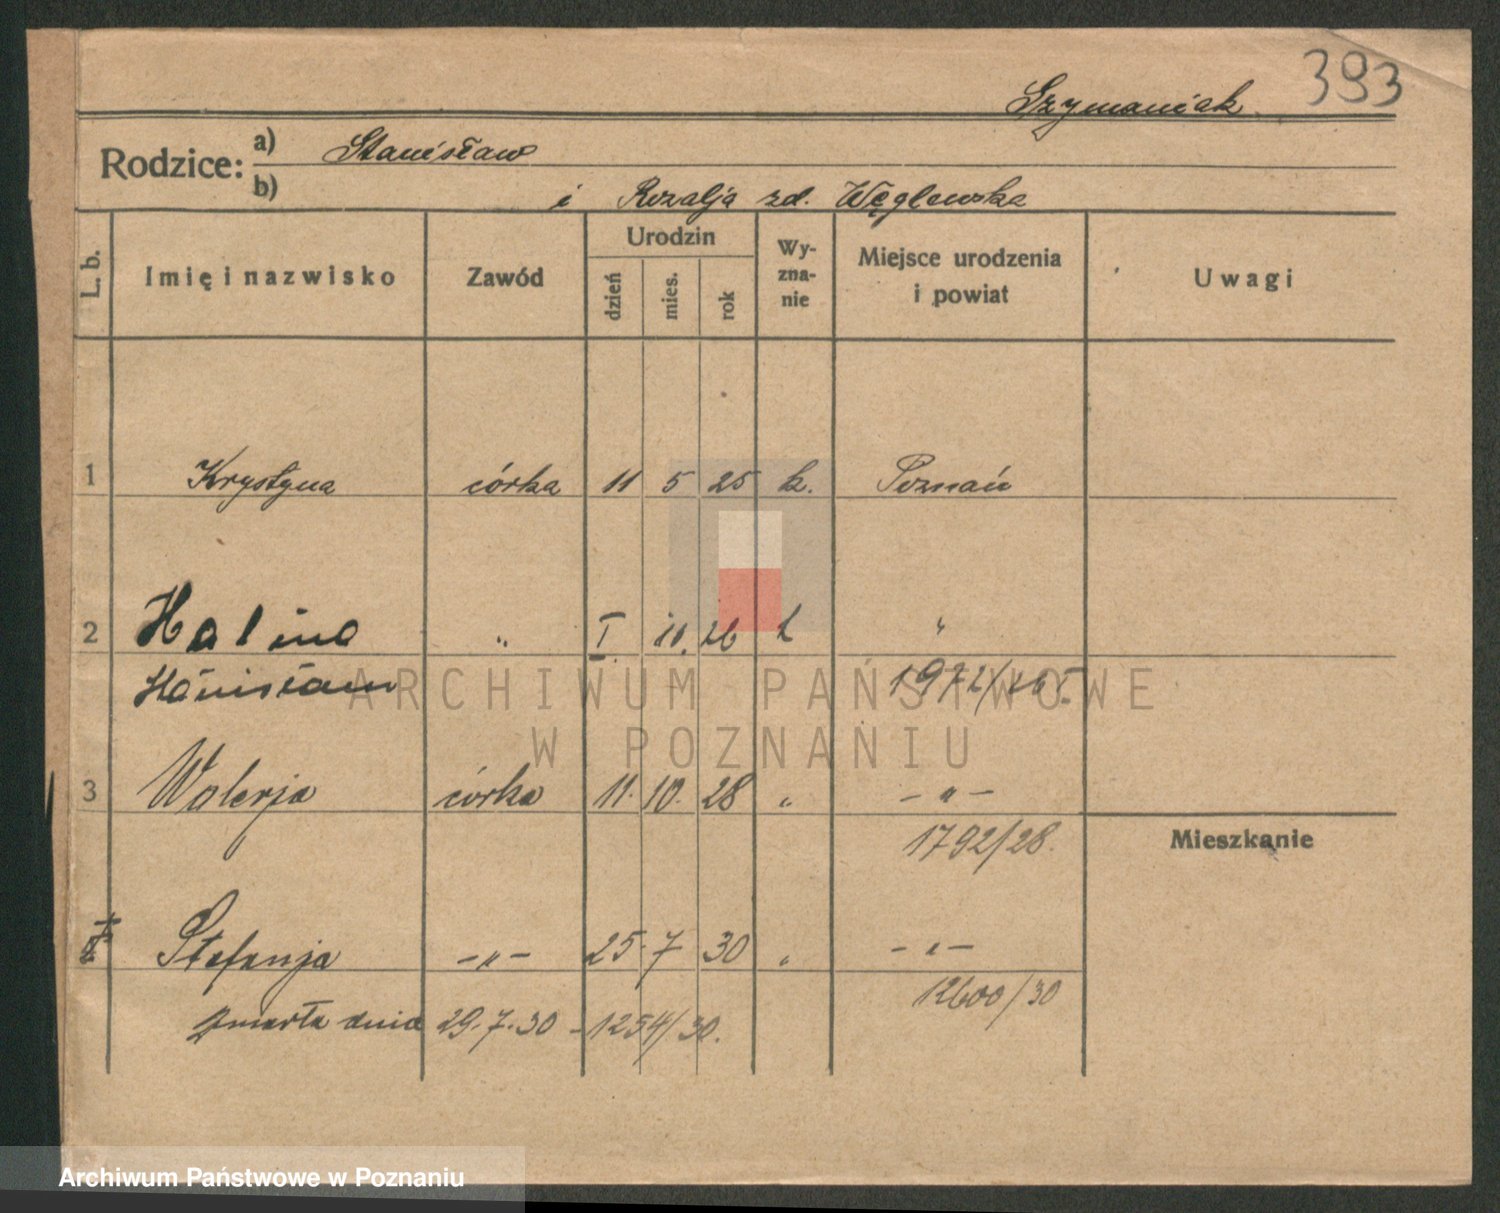 393
Szymaniak
Rodzice: a) Stanisław
b) i Rozalja zd. Węglewska
L. b. Imię i nazwisko Zawód Urodzin dzień mies. rok Wyznanie Miejsce urodzenia i powiat Uwagi
1 Krystyna córka 11 5 25 k. Poznań
2 Halina „ I 11. 26 „
Stanisława 1972/
ARCHIWUM PAŃSTWOWE
W POZNANIU
3 Walerja córka 11. 10. 28 „ – „ –
1792/28.
Mieszkanie
Stefanja – „ – 25. 7 30 „ – „ –
12600/30
zmarła dnia 29.7.30 – 1254/30.
Archiwum Państwowe w Poznaniu